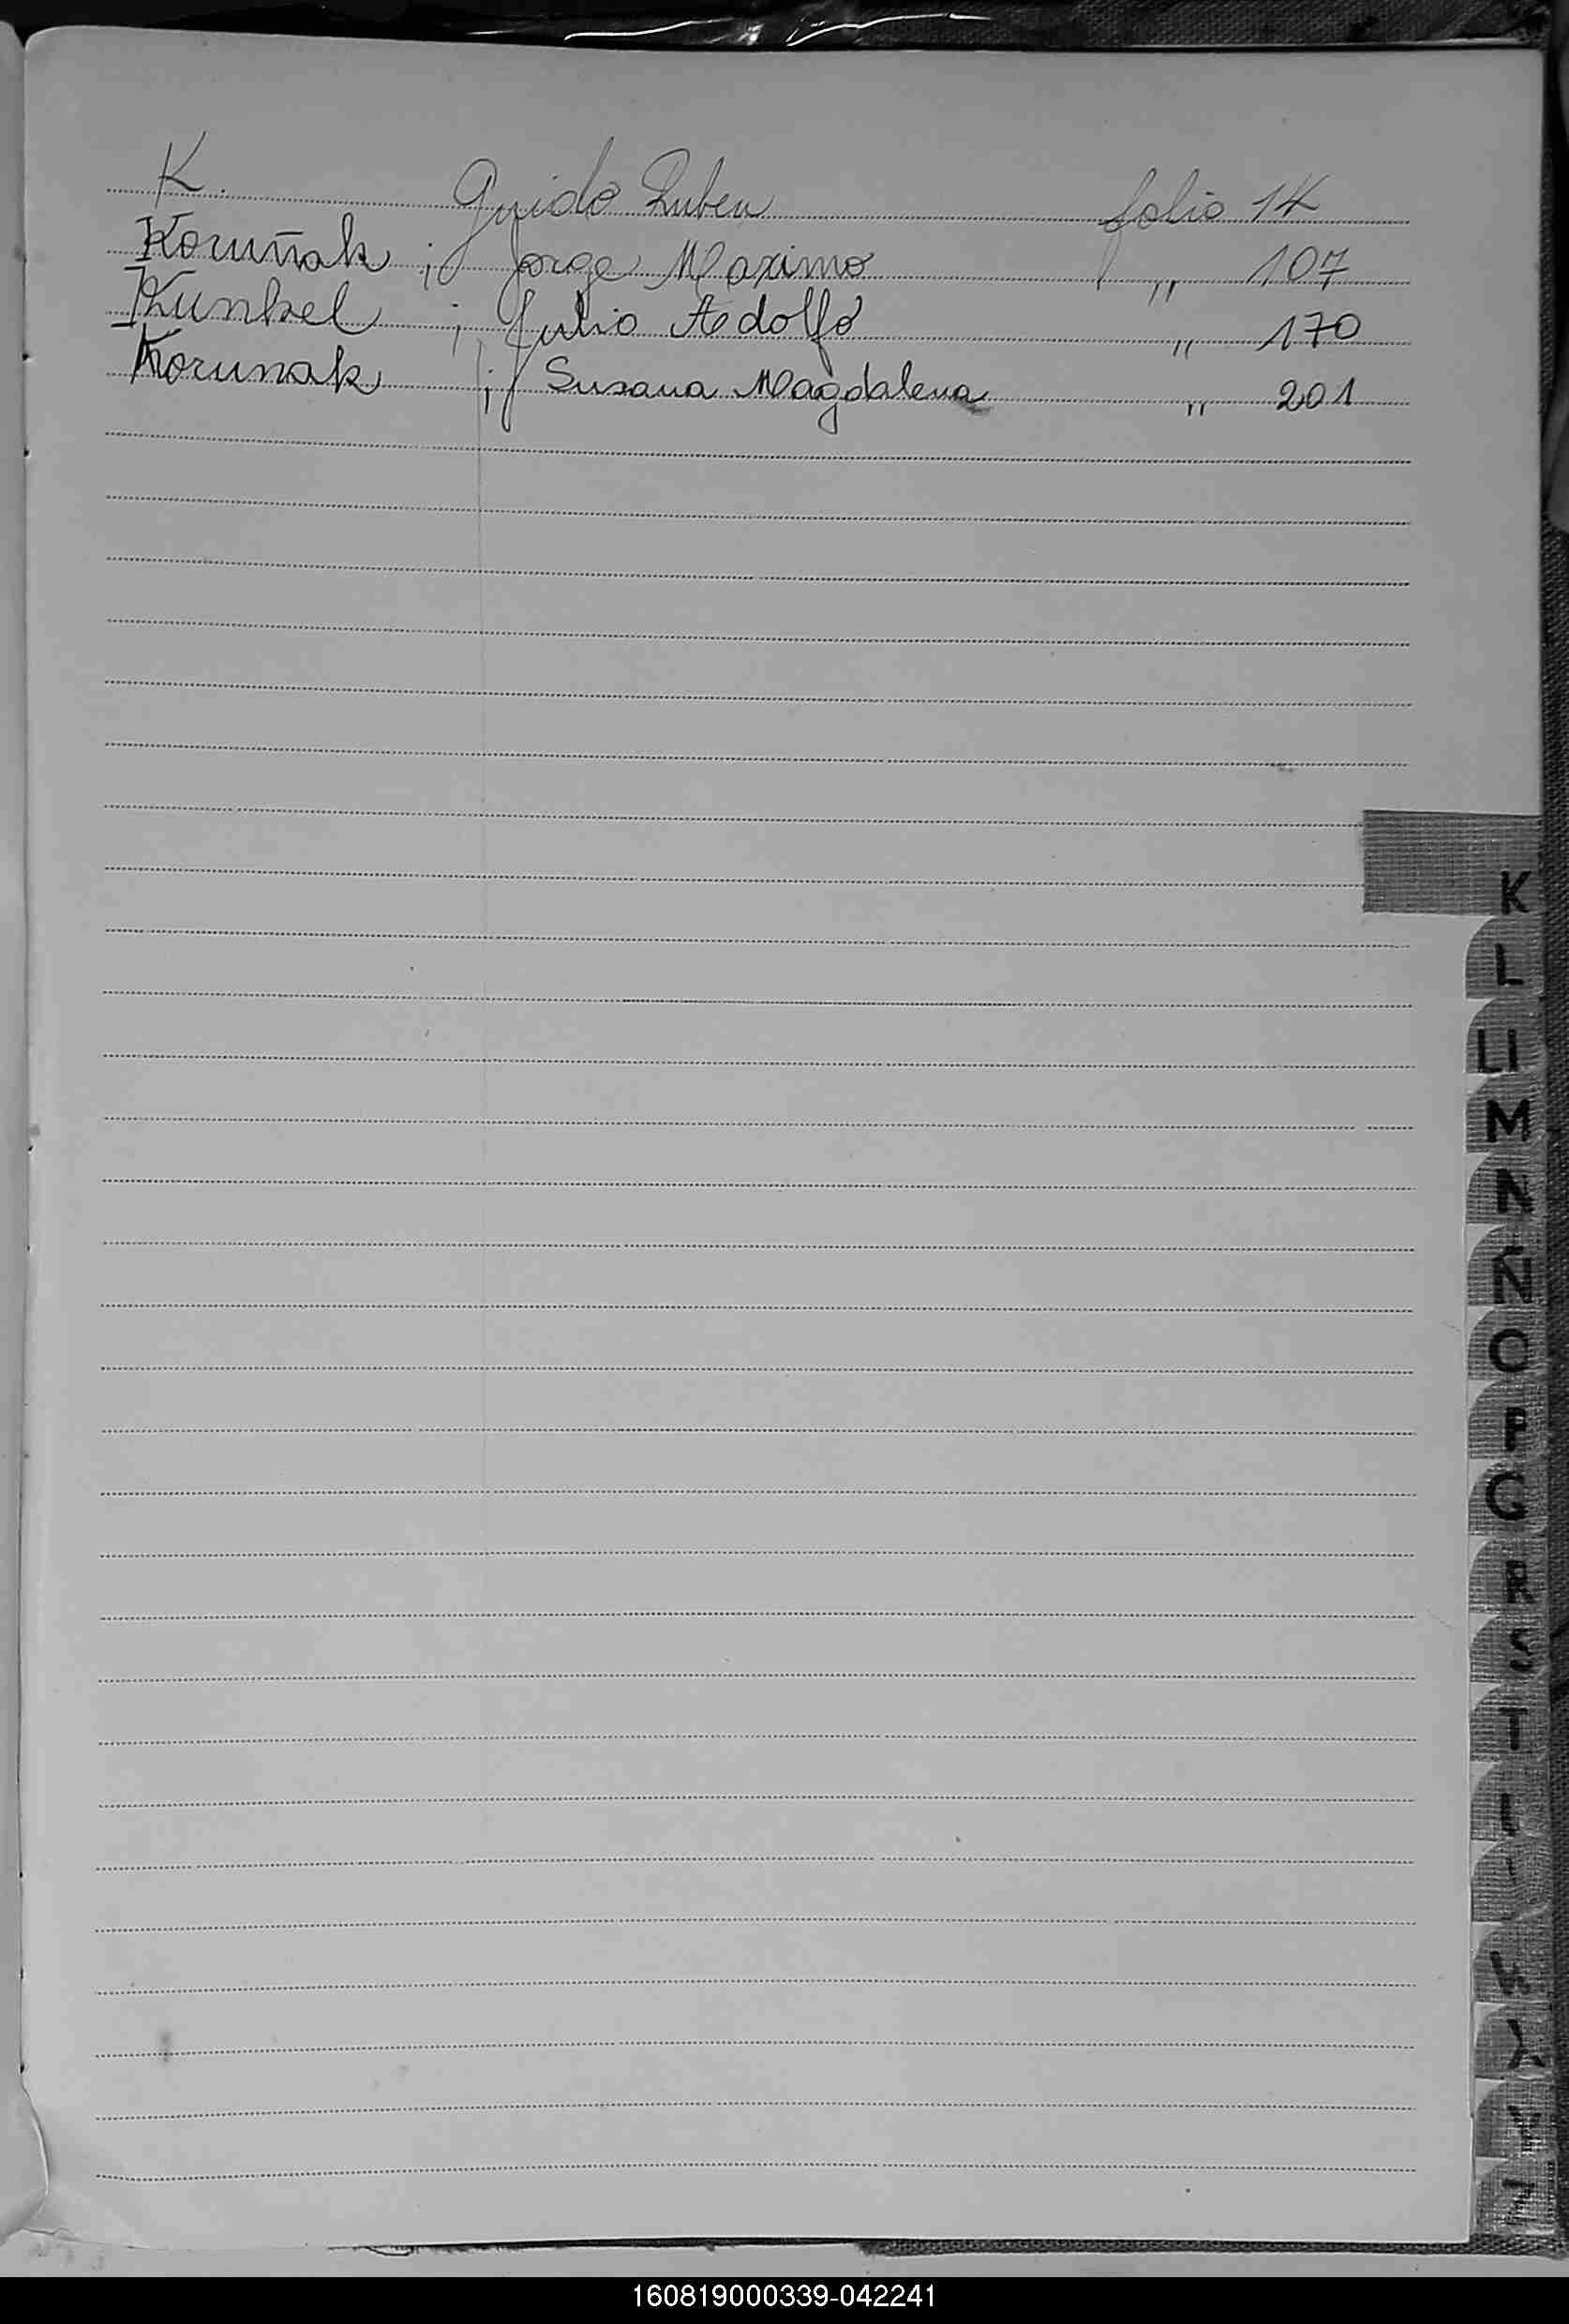 K. Guido Ruben folio 14
Koruñak ; Jorge Maximo " 107
Kunkel ; Julio Adolfo " 170
Korunak ; Susana Magdalena " 201
K
L
Ll
M
N
Ñ
O
P
Q
R
S
T
160819000339-042241